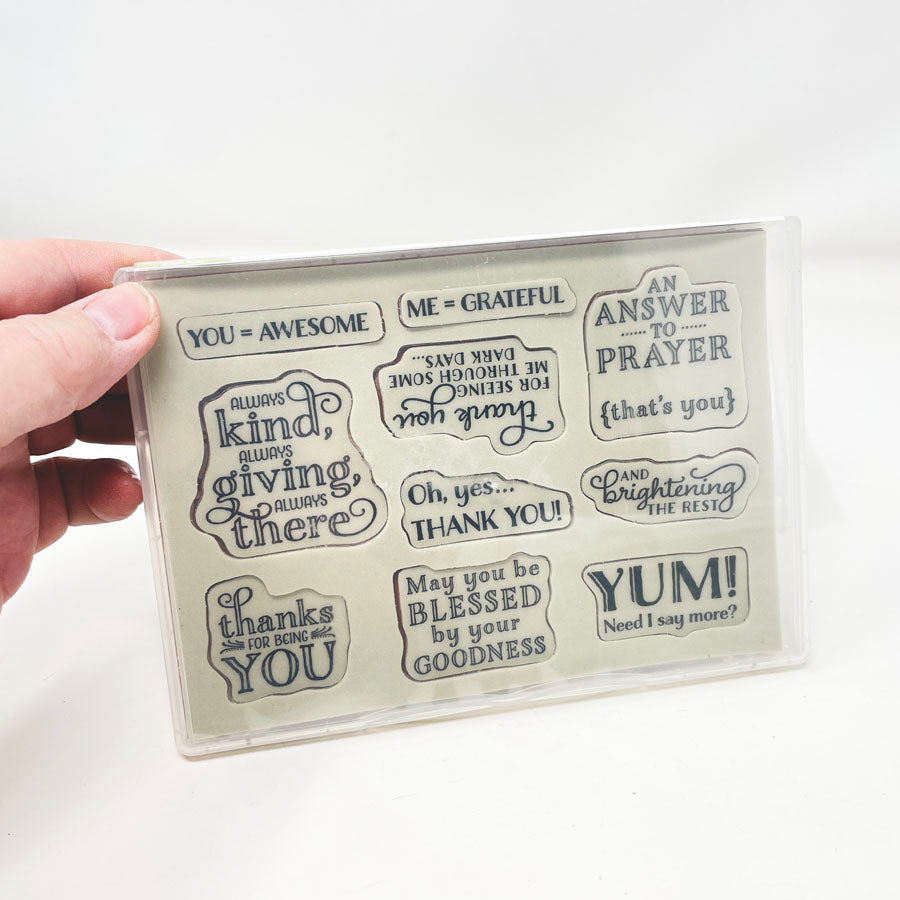 YOU = AWESOME
ME = GRATEFUL
AN
ANSWER
TO
PRAYER
{that's you}
thank you
FOR SEEING
ME THROUGH SOME
DARK DAYS...
ALWAYS
kind,
ALWAYS
giving,
ALWAYS
there
Oh, yes...
THANK YOU!
AND
brightening
THE REST
thanks
FOR BEING
YOU
May you be
BLESSED
by your
GOODNESS
YUM!
Need I say more?